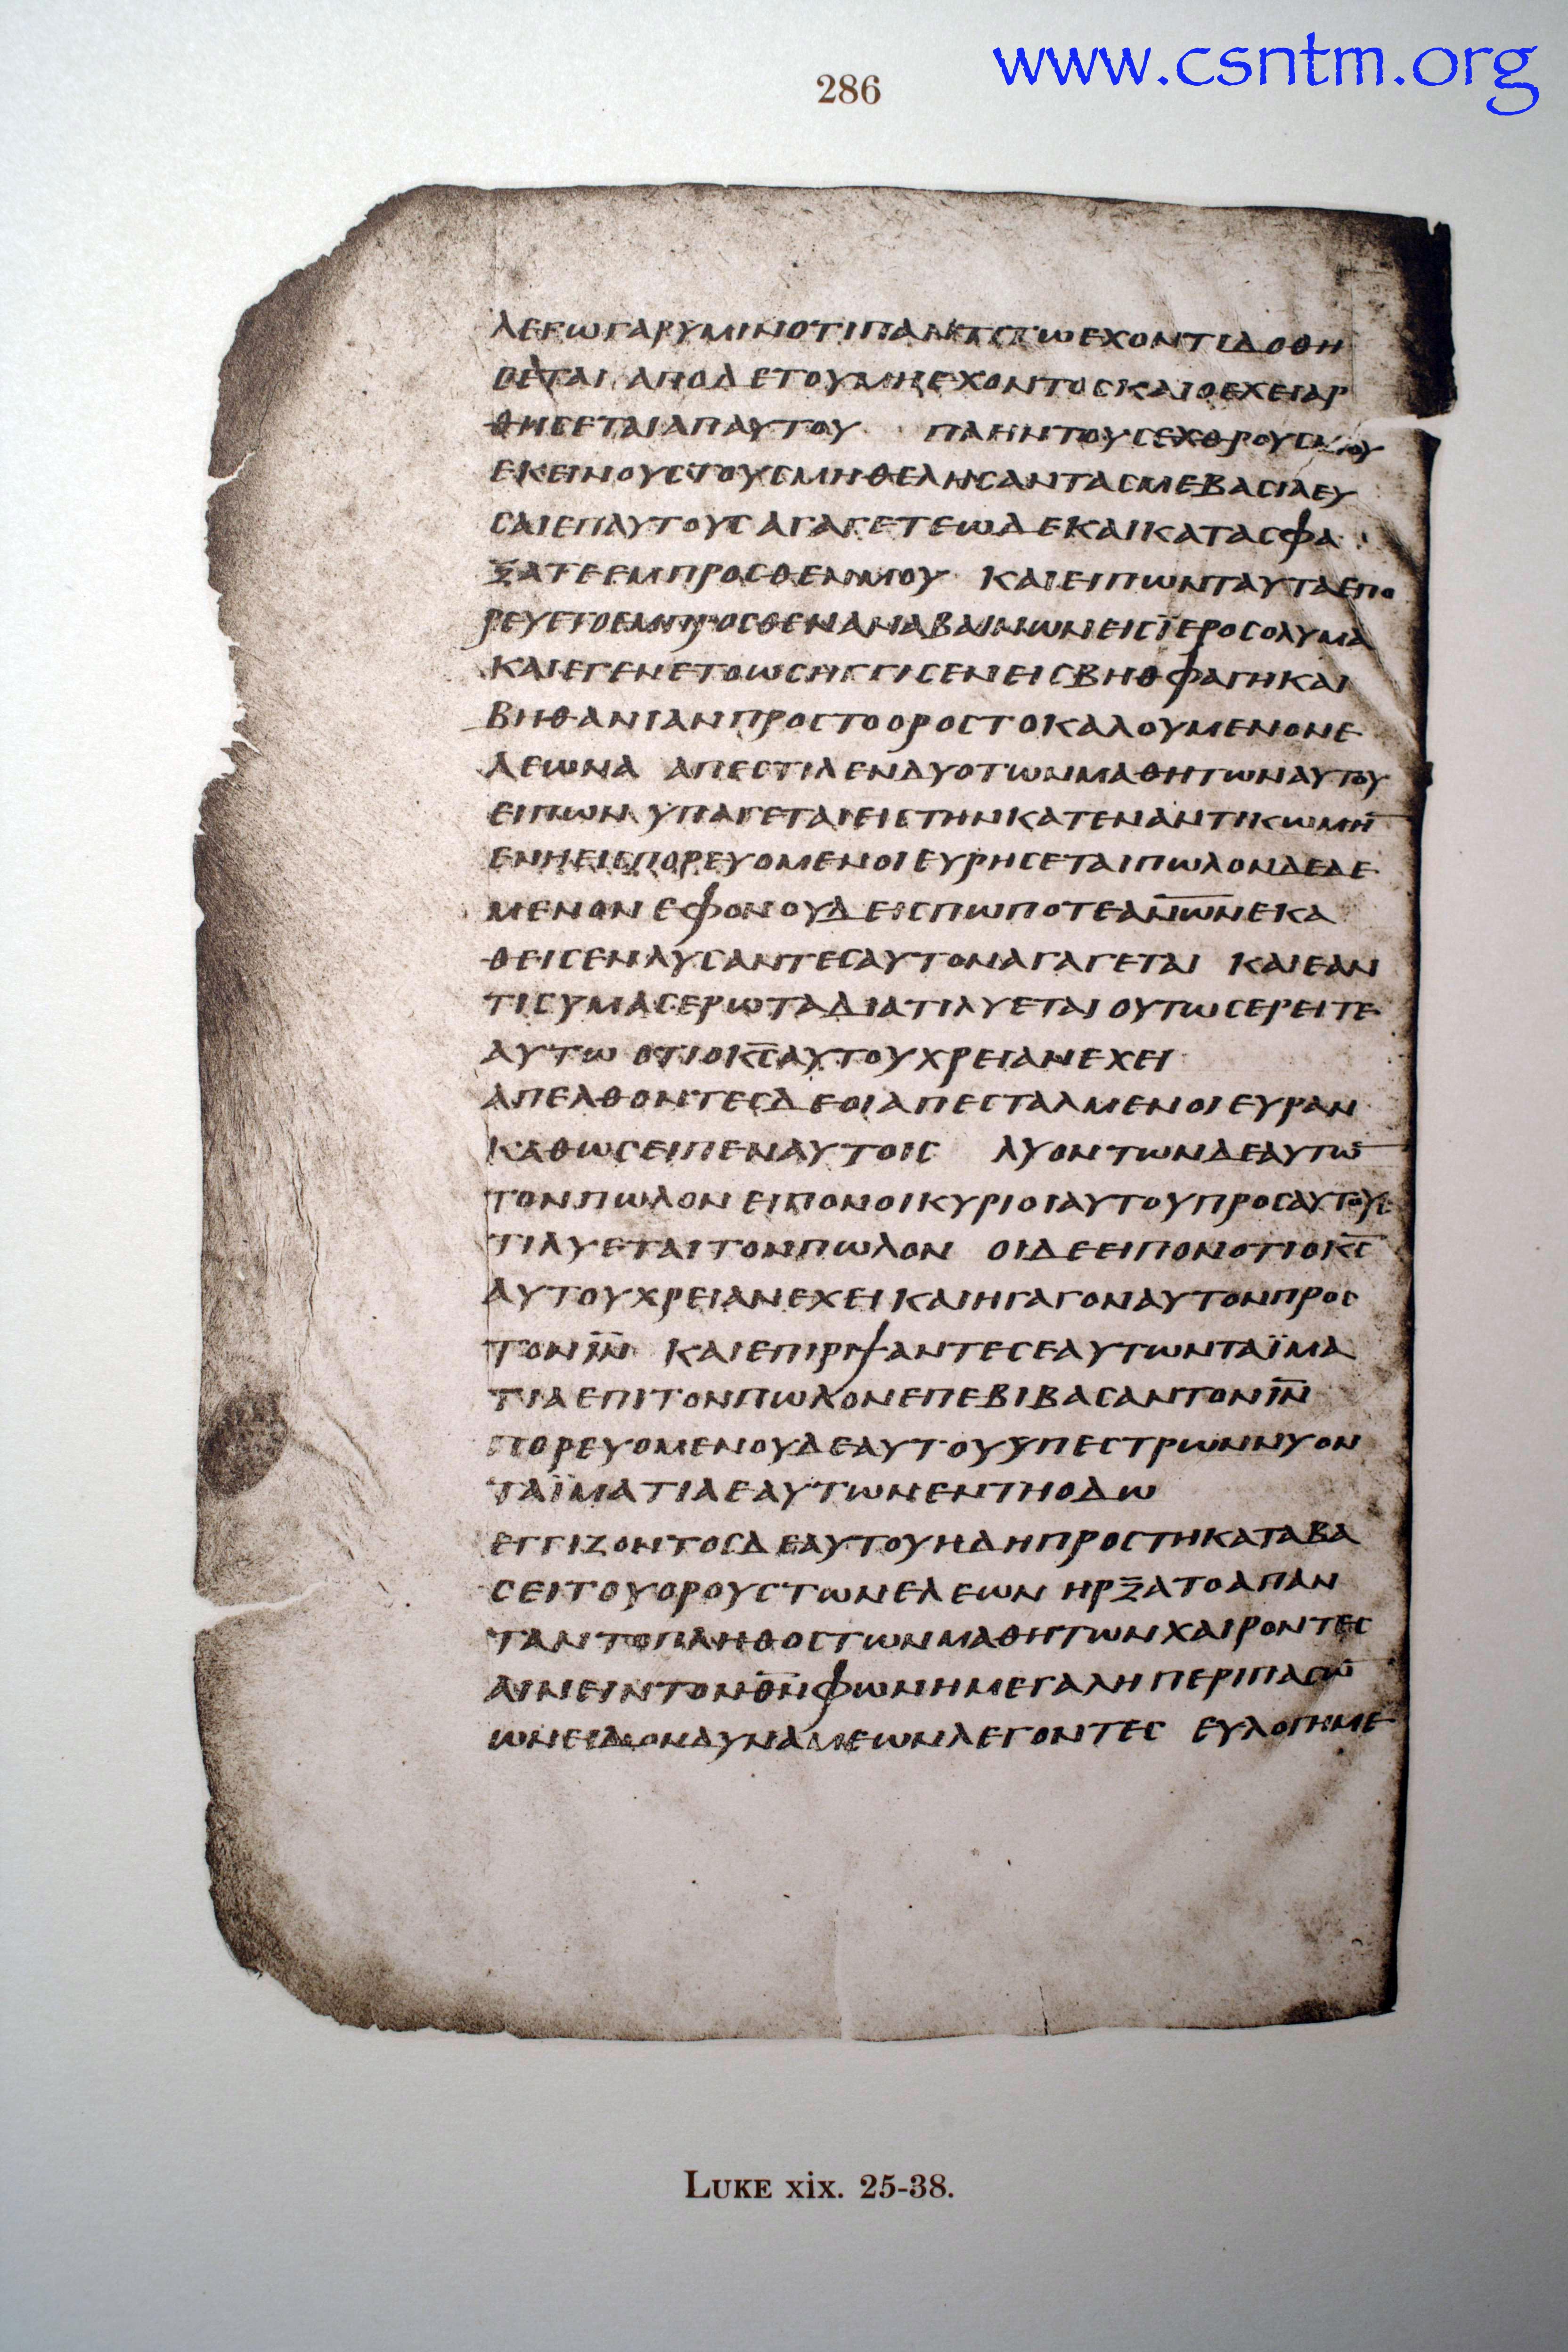 www.csntm.org
286
ΛΕΓΩΓΑΡΥΜΙΝΟΤΙΠΑΝΤΙΤΩΕΧΟΝΤΙΔΟΘΗ
ϹΕΤΑΙ ΑΠΟΔΕΤΟΥΜΗΕΧΟΝΤΟϹΚΑΙΟΕΧΕΙΑΡ
ΘΗϹΕΤΑΙΑΠΑΥΤΟΥ ΠΛΗΝΤΟΥϹΕΧΘΡΟΥϹΜΟΥ
ΕΚΕΙΝΟΥϹΤΟΥϹΜΗΘΕΛΗϹΑΝΤΑϹΜΕΒΑϹΙΛΕΥ
ϹΑΙΕΠΑΥΤΟΥϹ ΑΓΑΓΕΤΕΩΔΕΚΑΙΚΑΤΑϹΦΑ
ΞΑΤΕΕΜΠΡΟϹΘΕΝΜΟΥ ΚΑΙΕΙΠΩΝΤΑΥΤΑΕΠΟ
ΡΕΥΕΤΟΕΜΠΡΟϹΘΕΝΑΝΑΒΑΙΝΩΝΕΙϹΪΕΡΟϹΟΛΥΜΑ
ΚΑΙΕΓΕΝΕΤΟΩϹΗΓΓΙϹΕΝΕΙϹΒΗΘΦΑΓΗΚΑΙ
ΒΗΘΑΝΙΑΝΠΡΟϹΤΟΟΡΟϹΤΟΚΑΛΟΥΜΕΝΟΝΕ
ΛΕΩΝΑ ΑΠΕϹΤΙΛΕΝΔΥΟΤΩΝΜΑΘΗΤΩΝΑΥΤΟΥ
ΕΙΠΩΝ ΥΠΑΓΕΤΑΙΕΙϹΤΗΝΚΑΤΕΝΑΝΤΙΚΩΜΗ̅
ΕΝΗΕΙϹΠΟΡΕΥΟΜΕΝΟΙΕΥΡΗϹΕΤΑΙΠΩΛΟΝΔΕΔΕ
ΜΕΝΟΝΕΦΟΝΟΥΔΕΙϹΠΩΠΟΤΕΑΝ̅Ω̅Ν̅ΕΚΑ
ΘΕΙϹΕΝΛΥϹΑΝΤΕϹΑΥΤΟΝΑΓΑΓΕΤΑΙ ΚΑΙΕΑΝ
ΤΙϹΥΜΑϹΕΡΩΤΑΔΙΑΤΙΛΥΕΤΑΙ ΟΥΤΩϹΕΡΕΙΤΕ
ΑΥΤΩ ΟΤΙΟΚ̅Ϲ̅ΑΥΤΟΥΧΡΕΙΑΝΕΧΕΙ
ΑΠΕΛΘΟΝΤΕϹΔΕΟΙΑΠΕϹΤΑΛΜΕΝΟΙΕΥΡΑΝ
ΚΑΘΩϹΕΙΠΕΝΑΥΤΟΙϹ ΛΥΟΝΤΩΝΔΕΑΥΤΩ̅
ΤΟΝΠΩΛΟΝ ΕΙΠΟΝΟΙΚΥΡΙΟΙΑΥΤΟΥΠΡΟϹΑΥΤΟΥϹ
ΤΙΛΥΕΤΑΙΤΟΝΠΩΛΟΝ ΟΙΔΕΕΙΠΟΝΟΤΙΟΚ̅Ϲ̅
ΑΥΤΟΥΧΡΕΙΑΝΕΧΕΙΚΑΙΗΓΑΓΟΝΑΥΤΟΝΠΡΟϹ
ΤΟΝΙ̅Ν̅ ΚΑΙΕΠΙΡΙΨΑΝΤΕϹΕΑΥΤΩΝΤΑΪΜΑ
ΤΙΑΕΠΙΤΟΝΠΩΛΟΝΕΠΕΒΙΒΑϹΑΝΤΟΝΙ̅Ν̅
ΠΟΡΕΥΟΜΕΝΟΥΔΕΑΥΤΟΥΫΠΕϹΤΡΩΝΝΥΟΝ
ΤΑΪΜΑΤΙΑΕΑΥΤΩΝΕΝΤΗΟΔΩ
ΕΓΓΙΖΟΝΤΟϹΔΕΑΥΤΟΥΗΔΗΠΡΟϹΤΗΚΑΤΑΒΑ
ϹΕΙΤΟΥΟΡΟΥϹΤΩΝΕΛΕΩΝ ΗΡΞΑΤΟΑΠΑΝ
ΤΑΝΤΟΠΛΗΘΟϹΤΩΝΜΑΘΗΤΩΝΧΑΙΡΟΝΤΕϹ
ΑΙΝΕΙΝΤΟΝΘ̅Ν̅ΦΩΝΗΜΕΓΑΛΗΠΕΡΙΠΑϹΩ̅
ΩΝΕΙΔΟΝΔΥΝΑΜΕΩΝΛΕΓΟΝΤΕϹ ΕΥΛΟΓΗΜΕ
LUKE xix. 25-38.